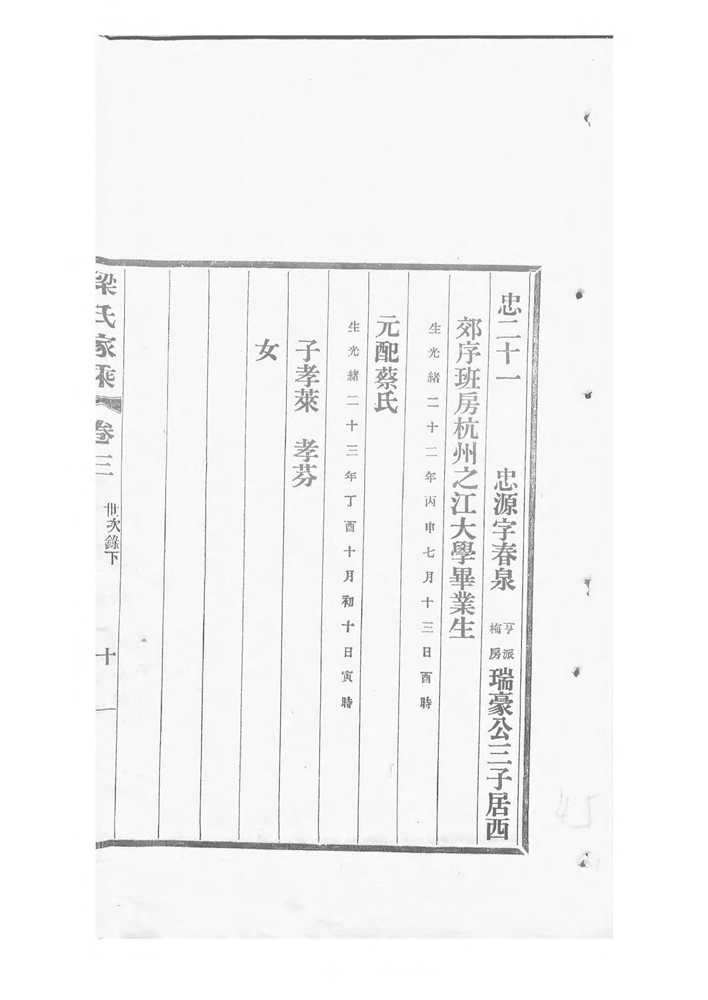 忠二十一　忠源字春泉　亨派梅房　瑞豪公三子居西
郊序班房杭州之江大學畢業生
生光緒二十二年丙申七月十三日酉時
元配蔡氏
生光緒二十三年丁酉十月初十日寅時
子孝萊　孝芬
女
梁氏家乘　卷三　世次錄下　十一
45